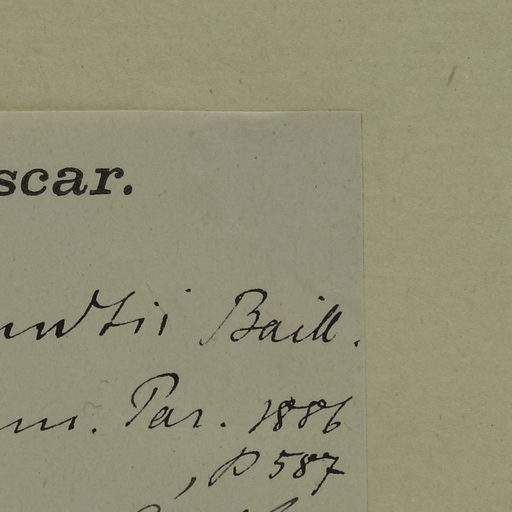 scar.
ndtii Baill.
m. Par. 1886
, p 587